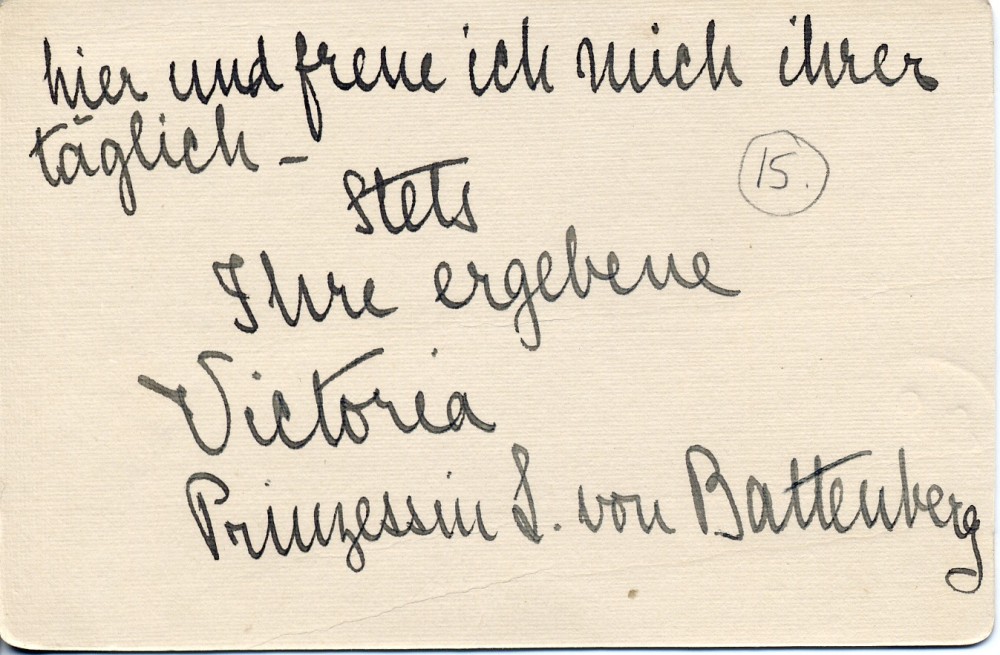 hier und freue ich mich ihrer
täglich –
15.
Stets
Ihre ergebene
Victoria
Prinzessin L. von Battenberg